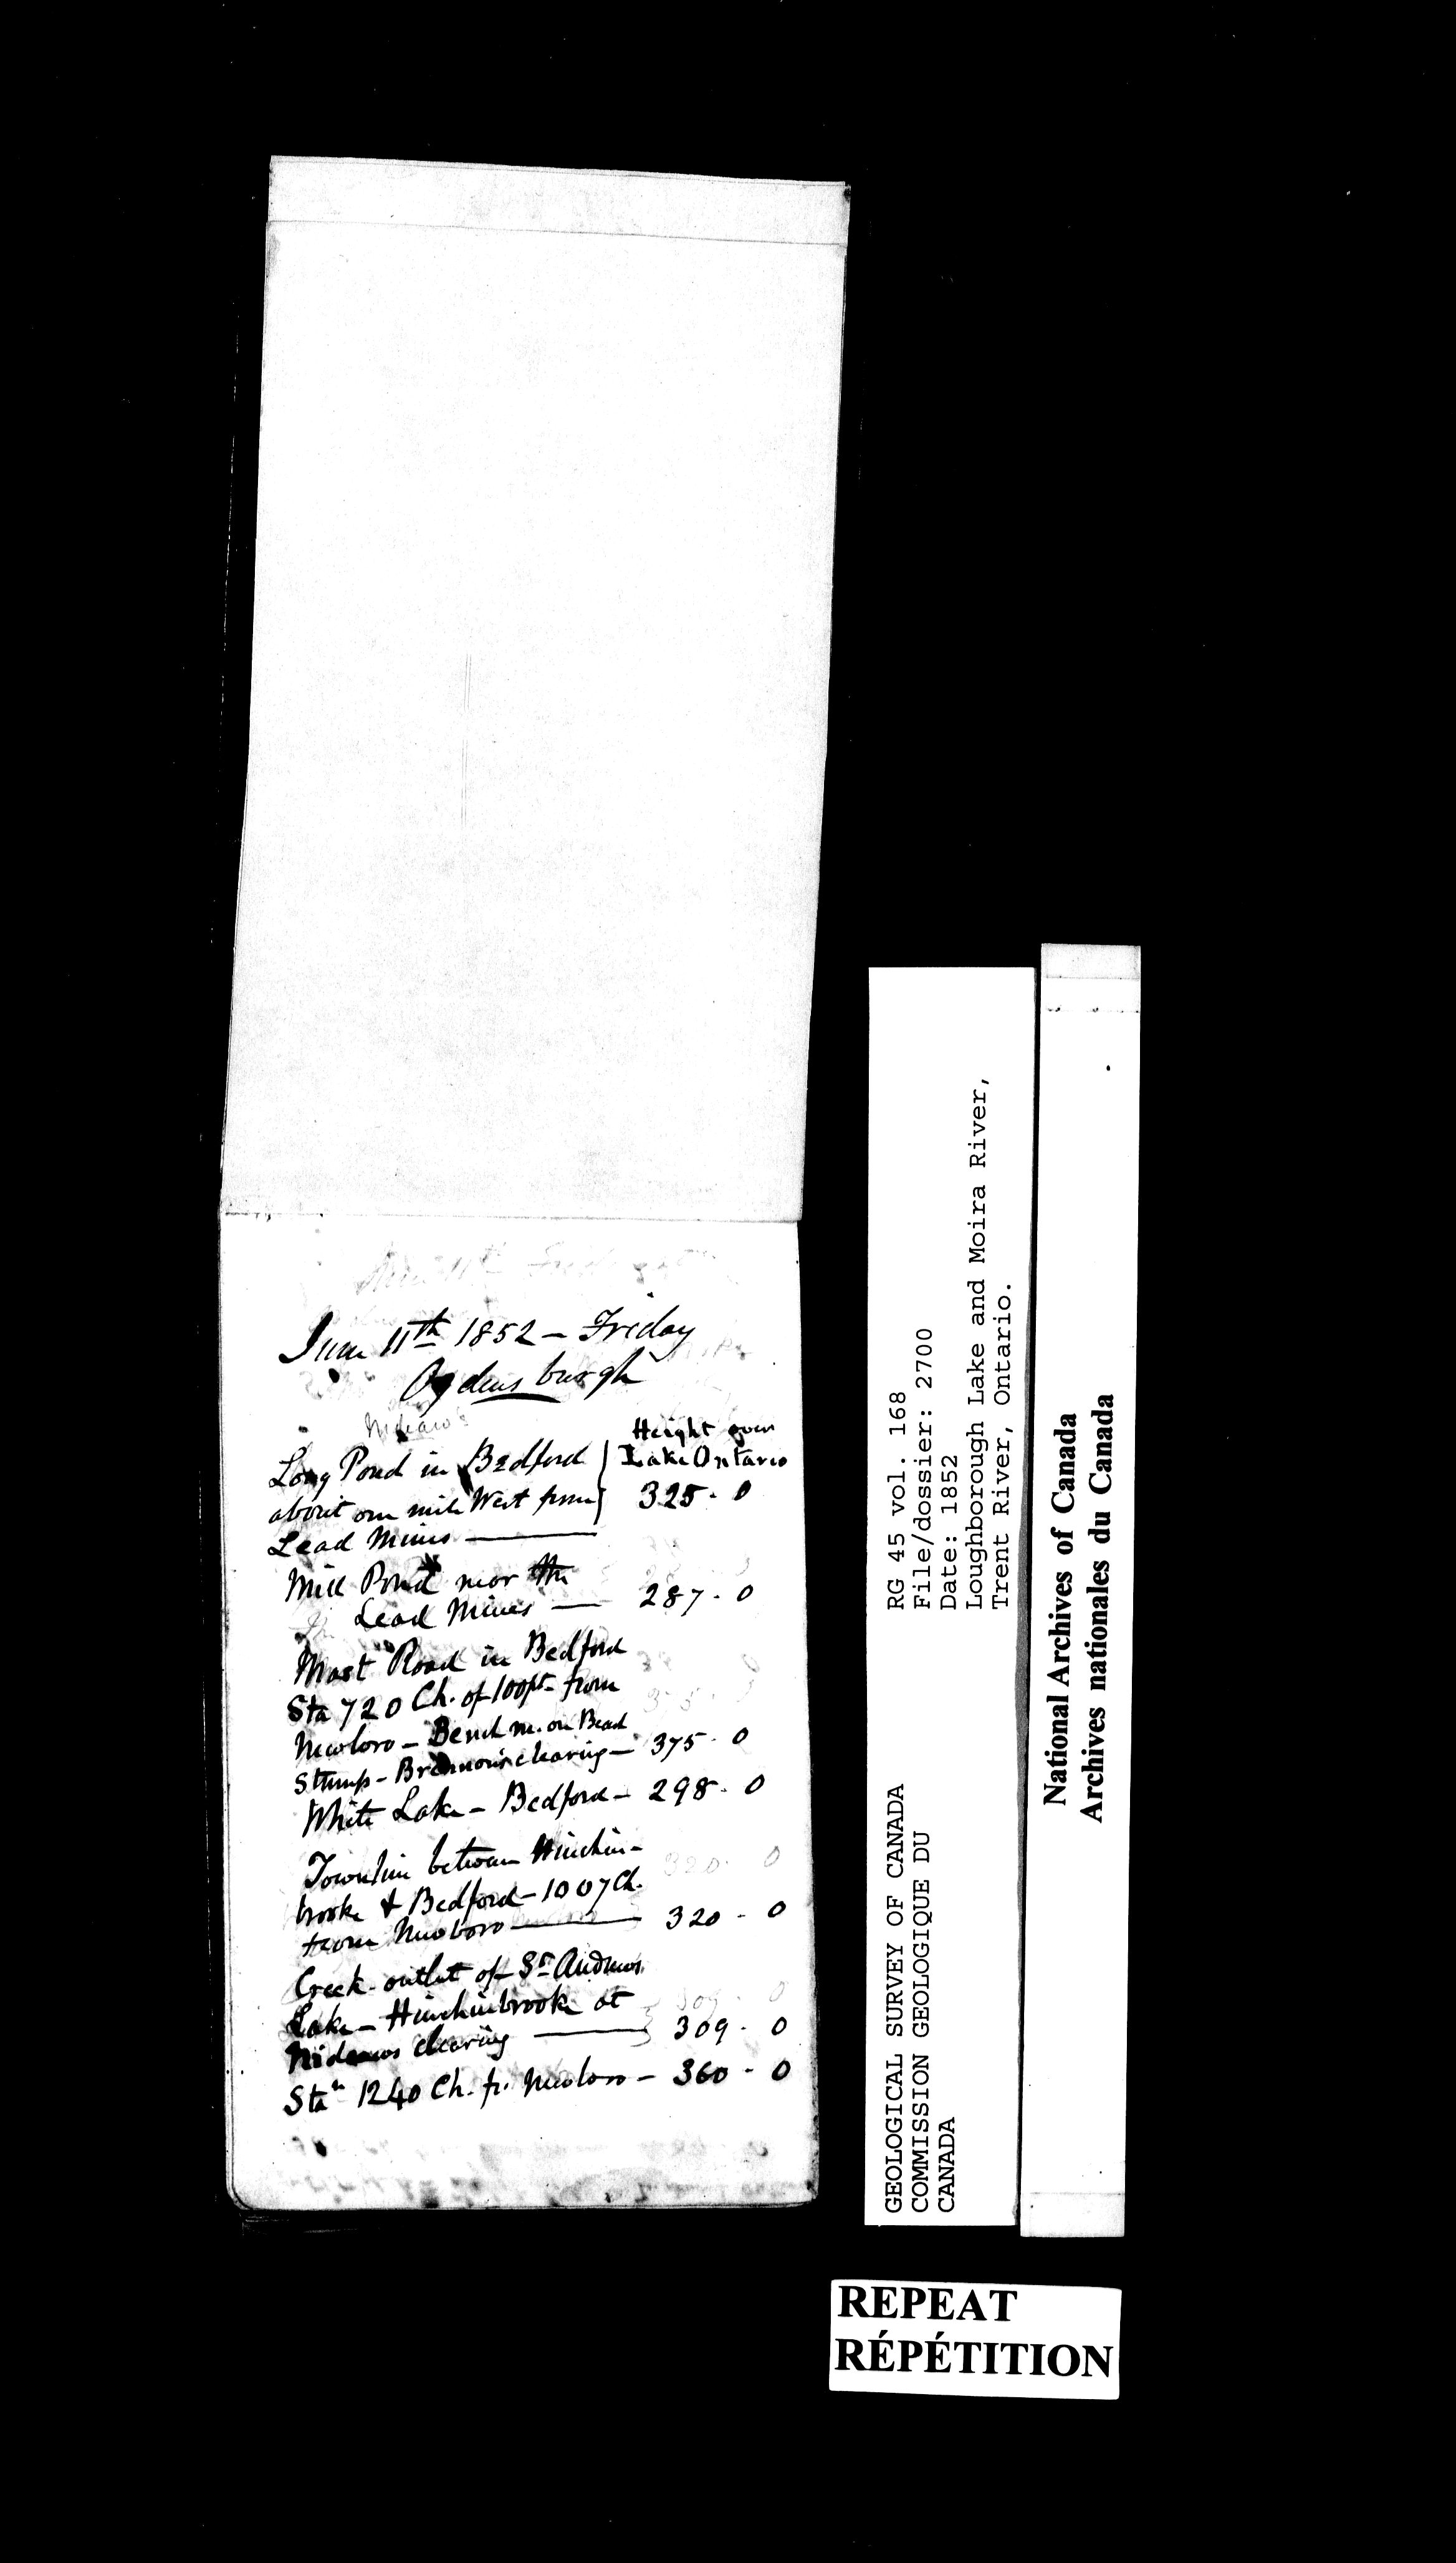 June 11th 1852 – Friday
Ogdensburgh
Height over
Lake Ontario
Long Pond in Bedford
about one mile West from 325 . 0
Lead Mines —
Mill Pond near the
Lead Mines — 287 . 0
Mast Road in Bedford
Sta 720 Ch. of 100ft from
Newboro – Bench m. on Beach
Stump – clearing – 375 . 0
White Lake – Bedford – 298 . 0
Townline between Hinchin-
brooke & Bedford – 1007 Ch.
from Newboro — 320 . 0
Creek outlet of St Andrews
Lake – Hinchinbrooke at
clearing — 309 . 0
Stan 1240 Ch. fr. Newboro – 360 . 0
GEOLOGICAL SURVEY OF CANADA
COMMISSION GEOLOGIQUE DU
CANADA
RG 45 vol. 168
File/dossier: 2700
Date: 1852
Loughborough Lake and Moira River,
Trent River, Ontario.
National Archives of Canada
Archives nationales du Canada
REPEAT
RÉPÉTITION